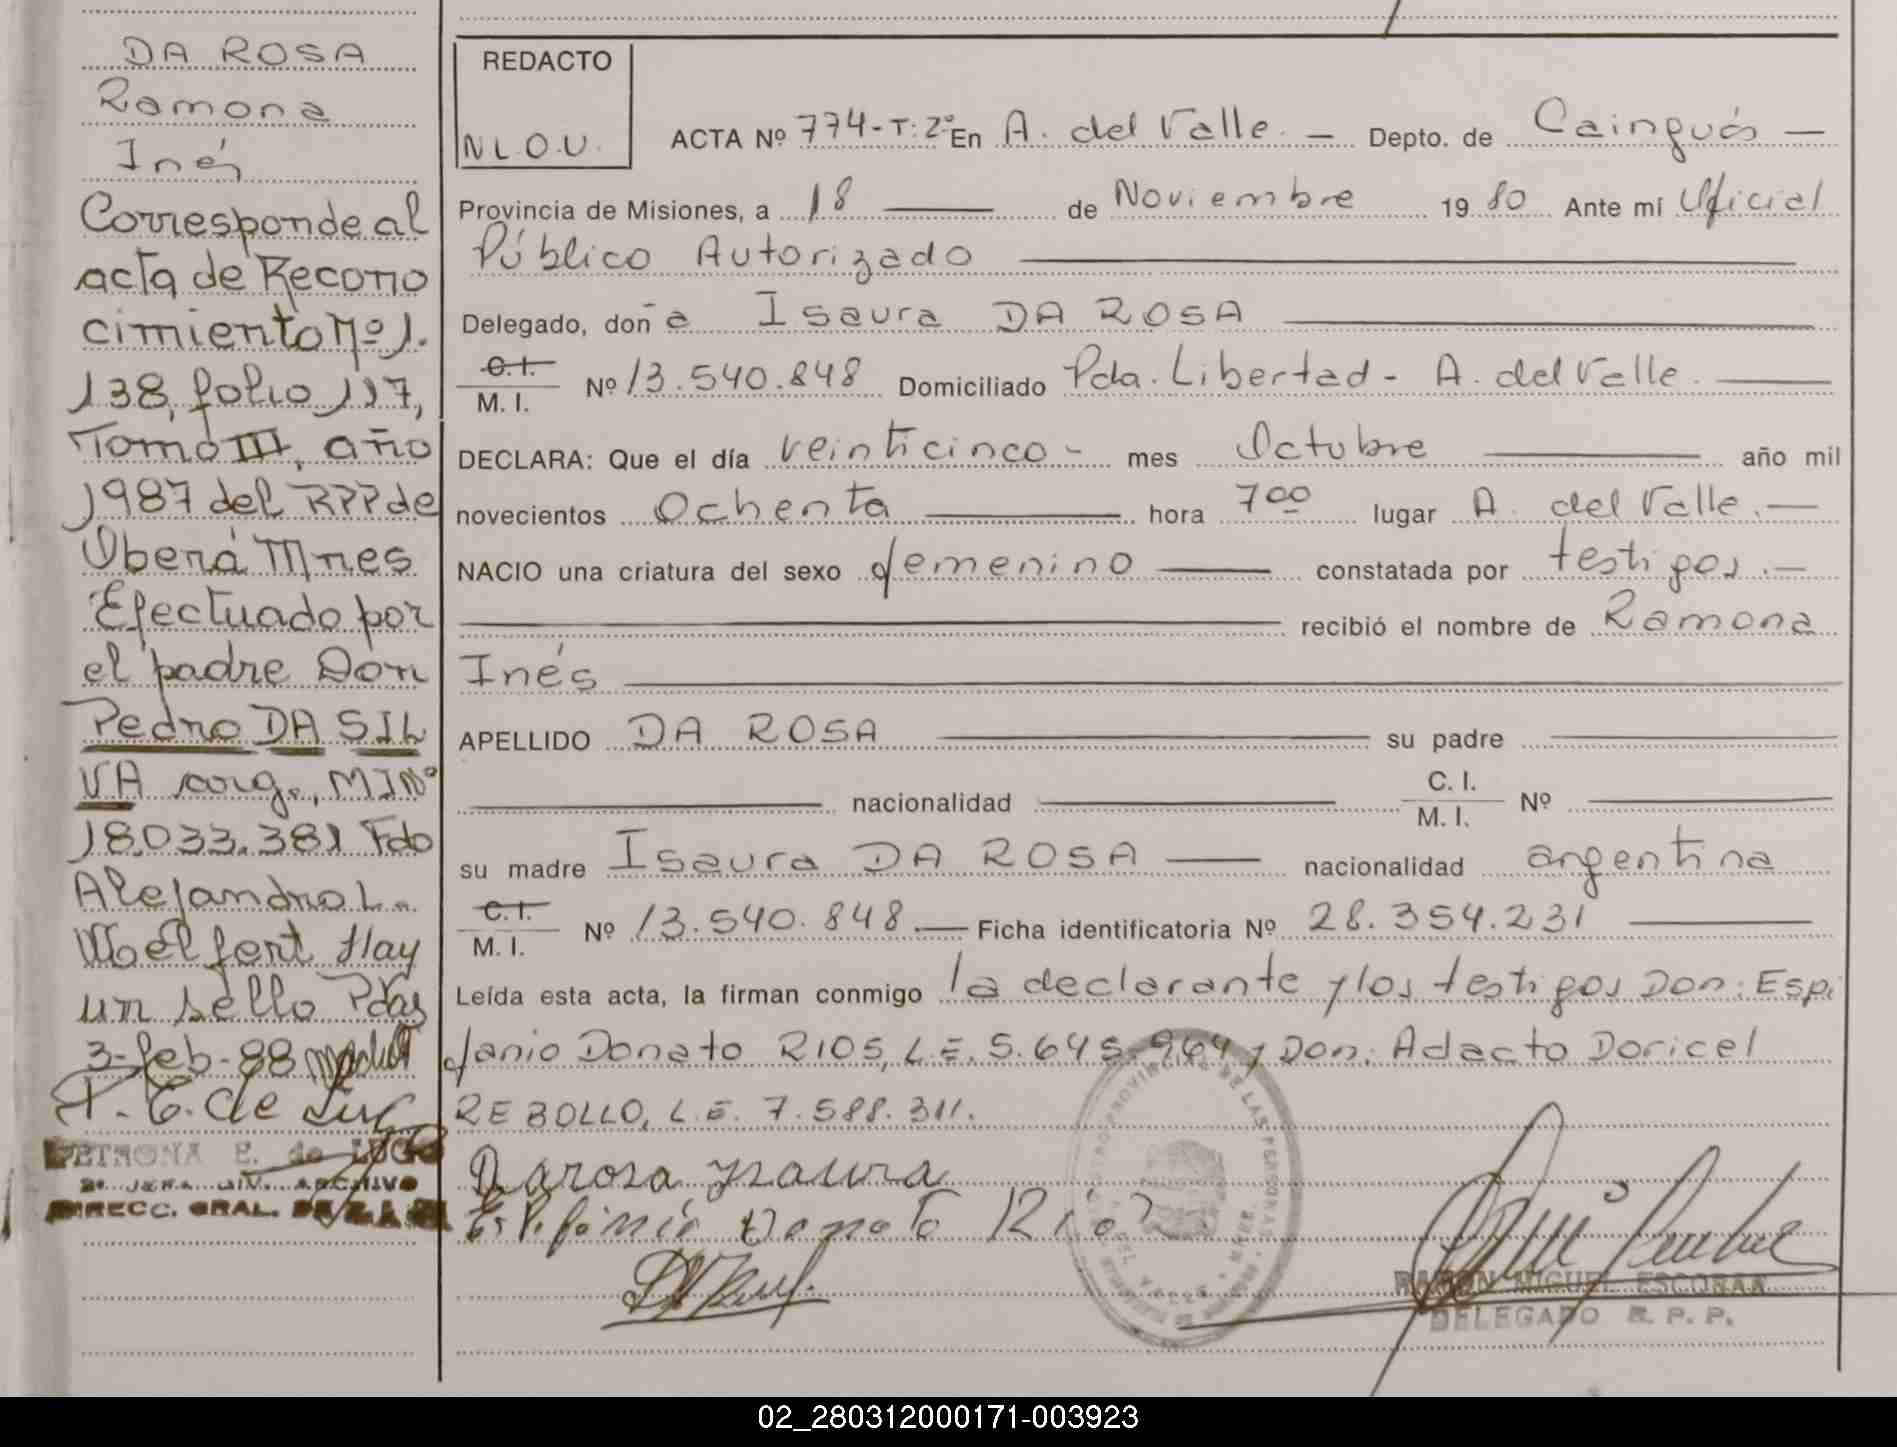 DA ROSA
Ramona
Inés
Corresponde al
acta de Recono
cimiento Nº 1.
138, folio 117,
Tomo III, año
1987 del RPP de
Oberá Mnes
Efectuado por
el padre Don
Pedro DA SIL
VA arg., MI Nº
18.033.381 Fdo
Alejandro L.
Woelfert Hay
un sello Pdas
3-feb-88
P. E. de Lugo
PETRONA E. de LUGO
2º JEFA DIV. ARCHIVO
DIRECC. GRAL.
REDACTO
N L . O . U .
ACTA Nº 774-T: 2º En A. del Valle. — Depto. de Cainguás —
Provincia de Misiones, a 18 — de Noviembre 19 80 Ante mí Oficial
Público Autorizado —
Delegado, doña Isaura DA ROSA —
C. I.
M. I. Nº 13.540.848 Domiciliado Pda. Libertad - A. del Valle. —
DECLARA: Que el día veinticinco - mes Octubre — año mil
novecientos Ochenta — hora 7 00 lugar A. del Valle. —
NACIO una criatura del sexo femenino — constatada por testigos. —
— recibió el nombre de Ramona
Inés —
APELLIDO DA ROSA — su padre —
— nacionalidad — C. I. M. I. Nº —
su madre Isaura DA ROSA — nacionalidad argentina
C. I.
M. I. Nº 13.540.848. — Ficha identificatoria Nº 28.354.231 —
Leída esta acta, la firman conmigo la declarante y los testigos Don: Espi
fanio Donato RIOS, L.E. 5.645.964 y Don: Adacto Doricel
REBOLLO, L.E. 7.588.311.
Darosa ysaura
Espifánio Donato Rios
RAMON MIGUEL ESCOBAR
DELEGADO R. P. P.
02_280312000171-003923